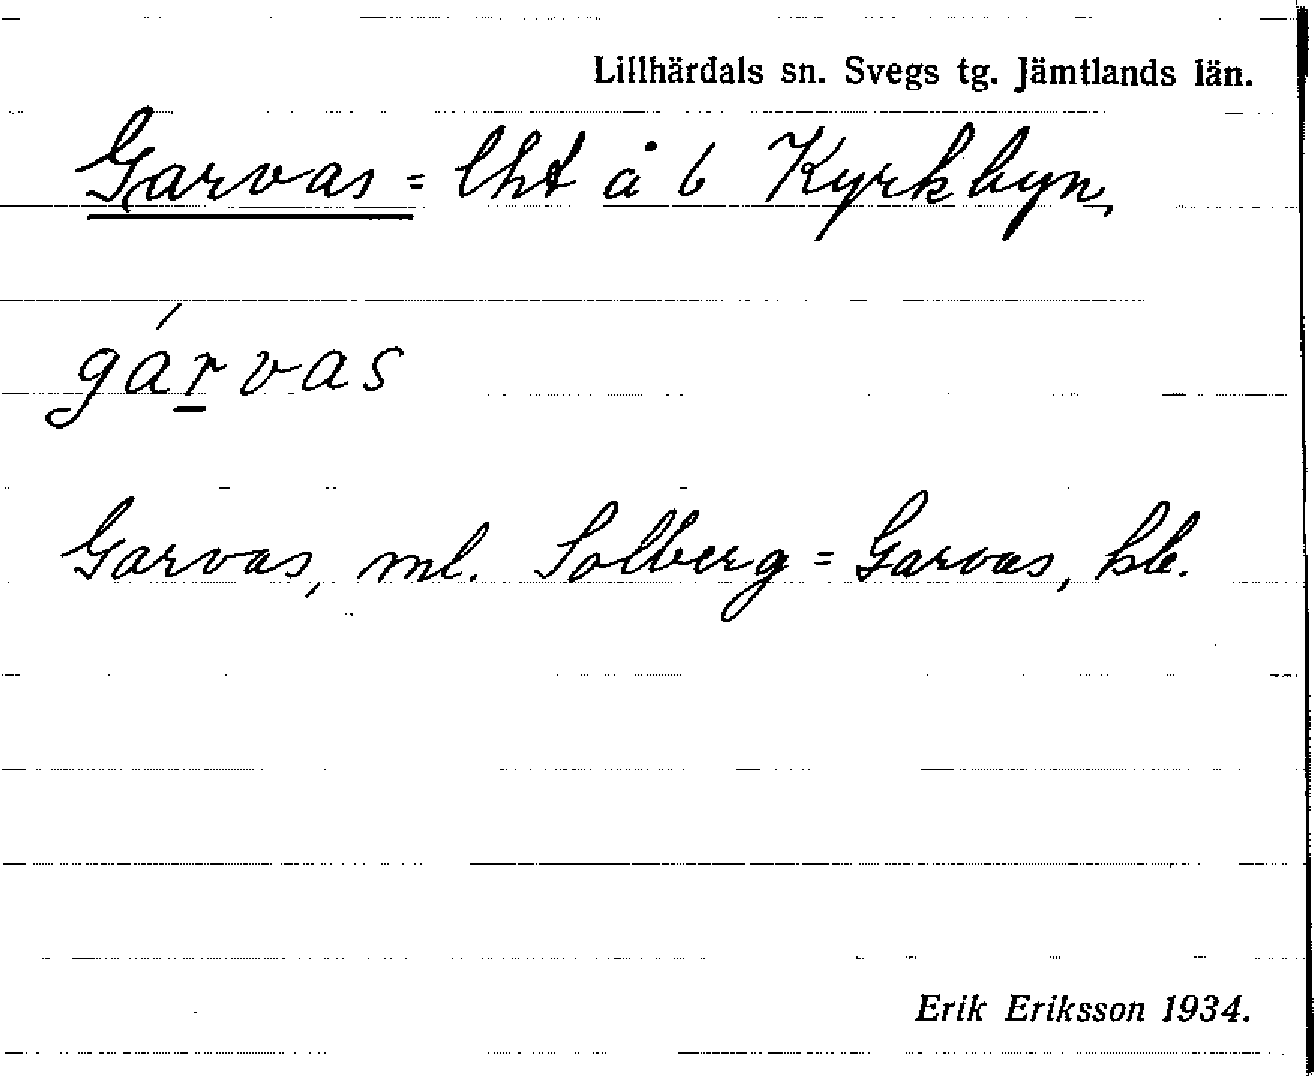 Lillhärdals sn. Svegs tg. Jämtlands län.
Garvas = lht å b Kyrkbyn,
gárvas
Garvas, ml. Solberg = Garvas, hle.
Erik Eriksson 1934.